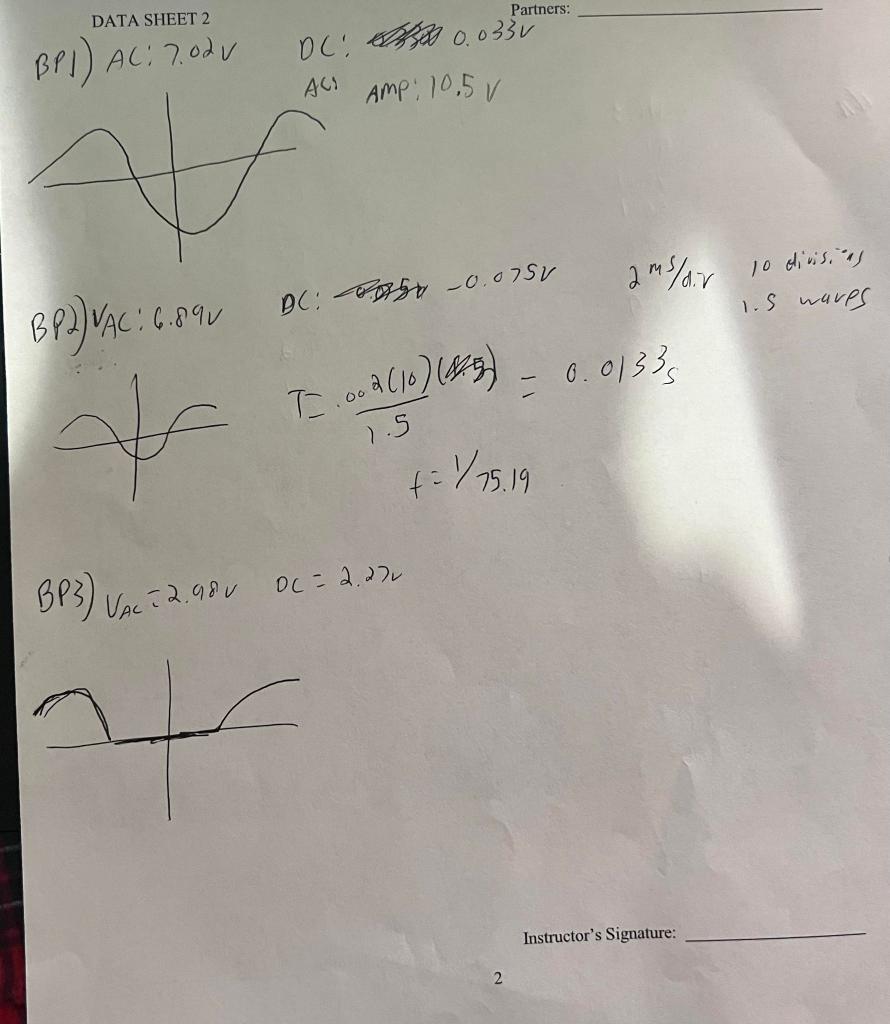 DATA SHEET 2
Partners:
BP1) AC: 7.02V DC: 0.033V
AC: AMP: 10.5 V
BP2) VAC: 6.89V DC: -0.075V 2 ms/div 10 divisions
1.5 waves
T= .002(10) / 1.5 = 0.0133s
f = 1/75.19
BP3) VAC = 2.98V DC = 2.27V
Instructor's Signature:
2